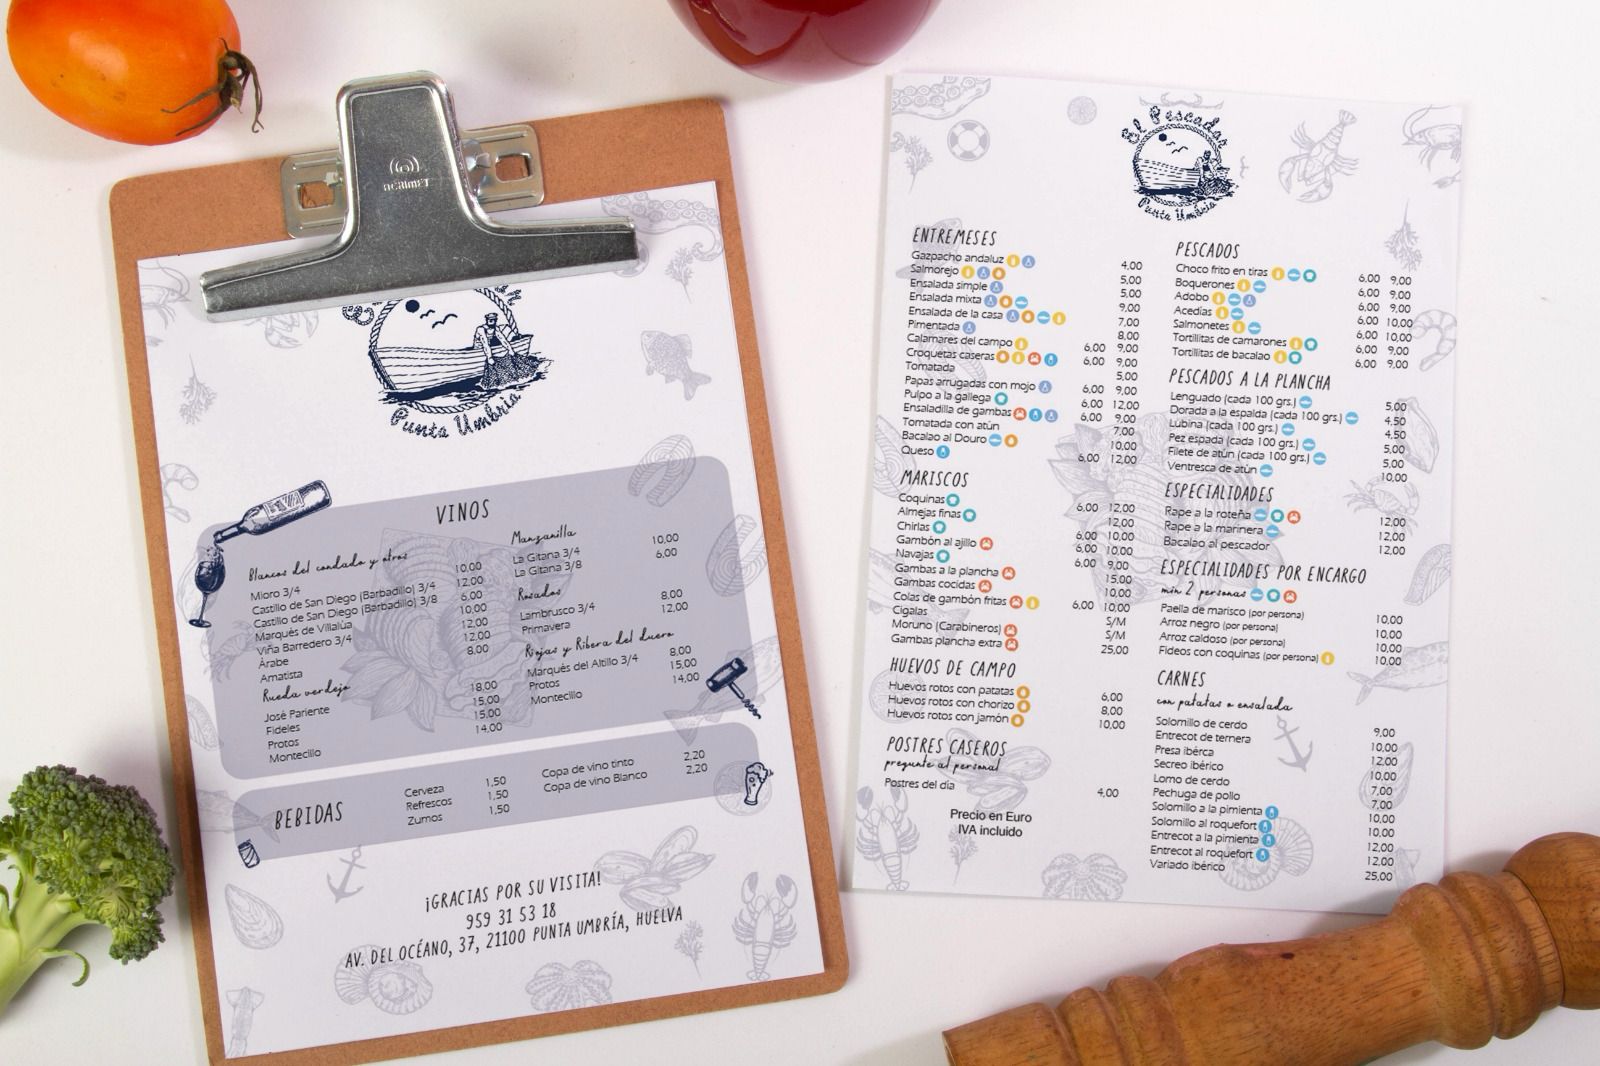 acrimet
Punta Umbría
VINOS
Blancos del condado y otros
Mioro 3/4 10,00
Castillo de San Diego (Barbadillo) 3/4 12,00
Castillo de San Diego (Barbadillo) 3/8 6,00
Marqués de Villalúa 10,00
Viña Barredero 3/4 12,00
Árabe 12,00
Amatista 8,00
Rueda verdejo
José Pariente 18,00
Fideles 15,00
Protos 15,00
Montecillo 14,00
Manzanilla
La Gitana 3/4 10,00
La Gitana 3/8 6,00
Rosados
Lambrusco 3/4 8,00
Primavera 12,00
Riojas y Ribera del duero
Marqués del Altillo 3/4 8,00
Protos 15,00
Montecillo 14,00
BEBIDAS
Cerveza 1,50
Refrescos 1,50
Zumos 1,50
Copa de vino tinto 2,20
Copa de vino Blanco 2,20
¡GRACIAS POR SU VISITA!
959 31 53 18
AV. DEL OCÉANO, 37, 21100 PUNTA UMBRÍA, HUELVA
El Pescador
Punta Umbría
ENTREMESES
Gazpacho andaluz 4,00
Salmorejo 5,00
Ensalada simple 5,00
Ensalada mixta 9,00
Ensalada de la casa 7,00
Pimentada 8,00
Calamares del campo 6,00 9,00
Croquetas caseras 6,00 9,00
Tomatada 5,00
Papas arrugadas con mojo 6,00 9,00
Pulpo a la gallega 6,00 12,00
Ensaladilla de gambas 6,00 9,00
Tomatada con atún 7,00
Bacalao al Douro 10,00
Queso 6,00 12,00
MARISCOS
Coquinas 6,00 12,00
Almejas finas 12,00
Chirlas 6,00 10,00
Gambón al ajillo 6,00 10,00
Navajas 6,00 9,00
Gambas a la plancha 15,00
Gambas cocidas 10,00
Colas de gambón fritas 6,00 10,00
Cigalas S/M
Moruno (Carabineros) S/M
Gambas plancha extra 25,00
HUEVOS DE CAMPO
Huevos rotos con patatas 6,00
Huevos rotos con chorizo 8,00
Huevos rotos con jamón 10,00
POSTRES CASEROS
pregunte al personal
Postres del día 4,00
Precio en Euro
IVA incluido
PESCADOS
Choco frito en tiras 6,00 9,00
Boquerones 6,00 9,00
Adobo 6,00 9,00
Acedías 6,00 10,00
Salmonetes 6,00 10,00
Tortillitas de camarones 6,00 9,00
Tortillitas de bacalao 6,00 9,00
PESCADOS A LA PLANCHA
Lenguado (cada 100 grs.) 5,00
Dorada a la espalda (cada 100 grs.) 4,50
Lubina (cada 100 grs.) 4,50
Pez espada (cada 100 grs.) 5,00
Filete de atún (cada 100 grs.) 5,00
Ventresca de atún 10,00
ESPECIALIDADES
Rape a la roteña 12,00
Rape a la marinera 12,00
Bacalao al pescador 12,00
ESPECIALIDADES POR ENCARGO
mín 2 personas
Paella de marisco (por persona) 10,00
Arroz negro (por persona) 10,00
Arroz caldoso (por persona) 10,00
Fideos con coquinas (por persona) 10,00
CARNES
con patatas o ensalada
Solomillo de cerdo 9,00
Entrecot de ternera 10,00
Presa ibérca 12,00
Secreo ibérico 10,00
Lomo de cerdo 7,00
Pechuga de pollo 7,00
Solomillo a la pimienta 10,00
Solomillo al roquefort 10,00
Entrecot a la pimienta 12,00
Entrecot al roquefort 12,00
Variado ibérico 25,00